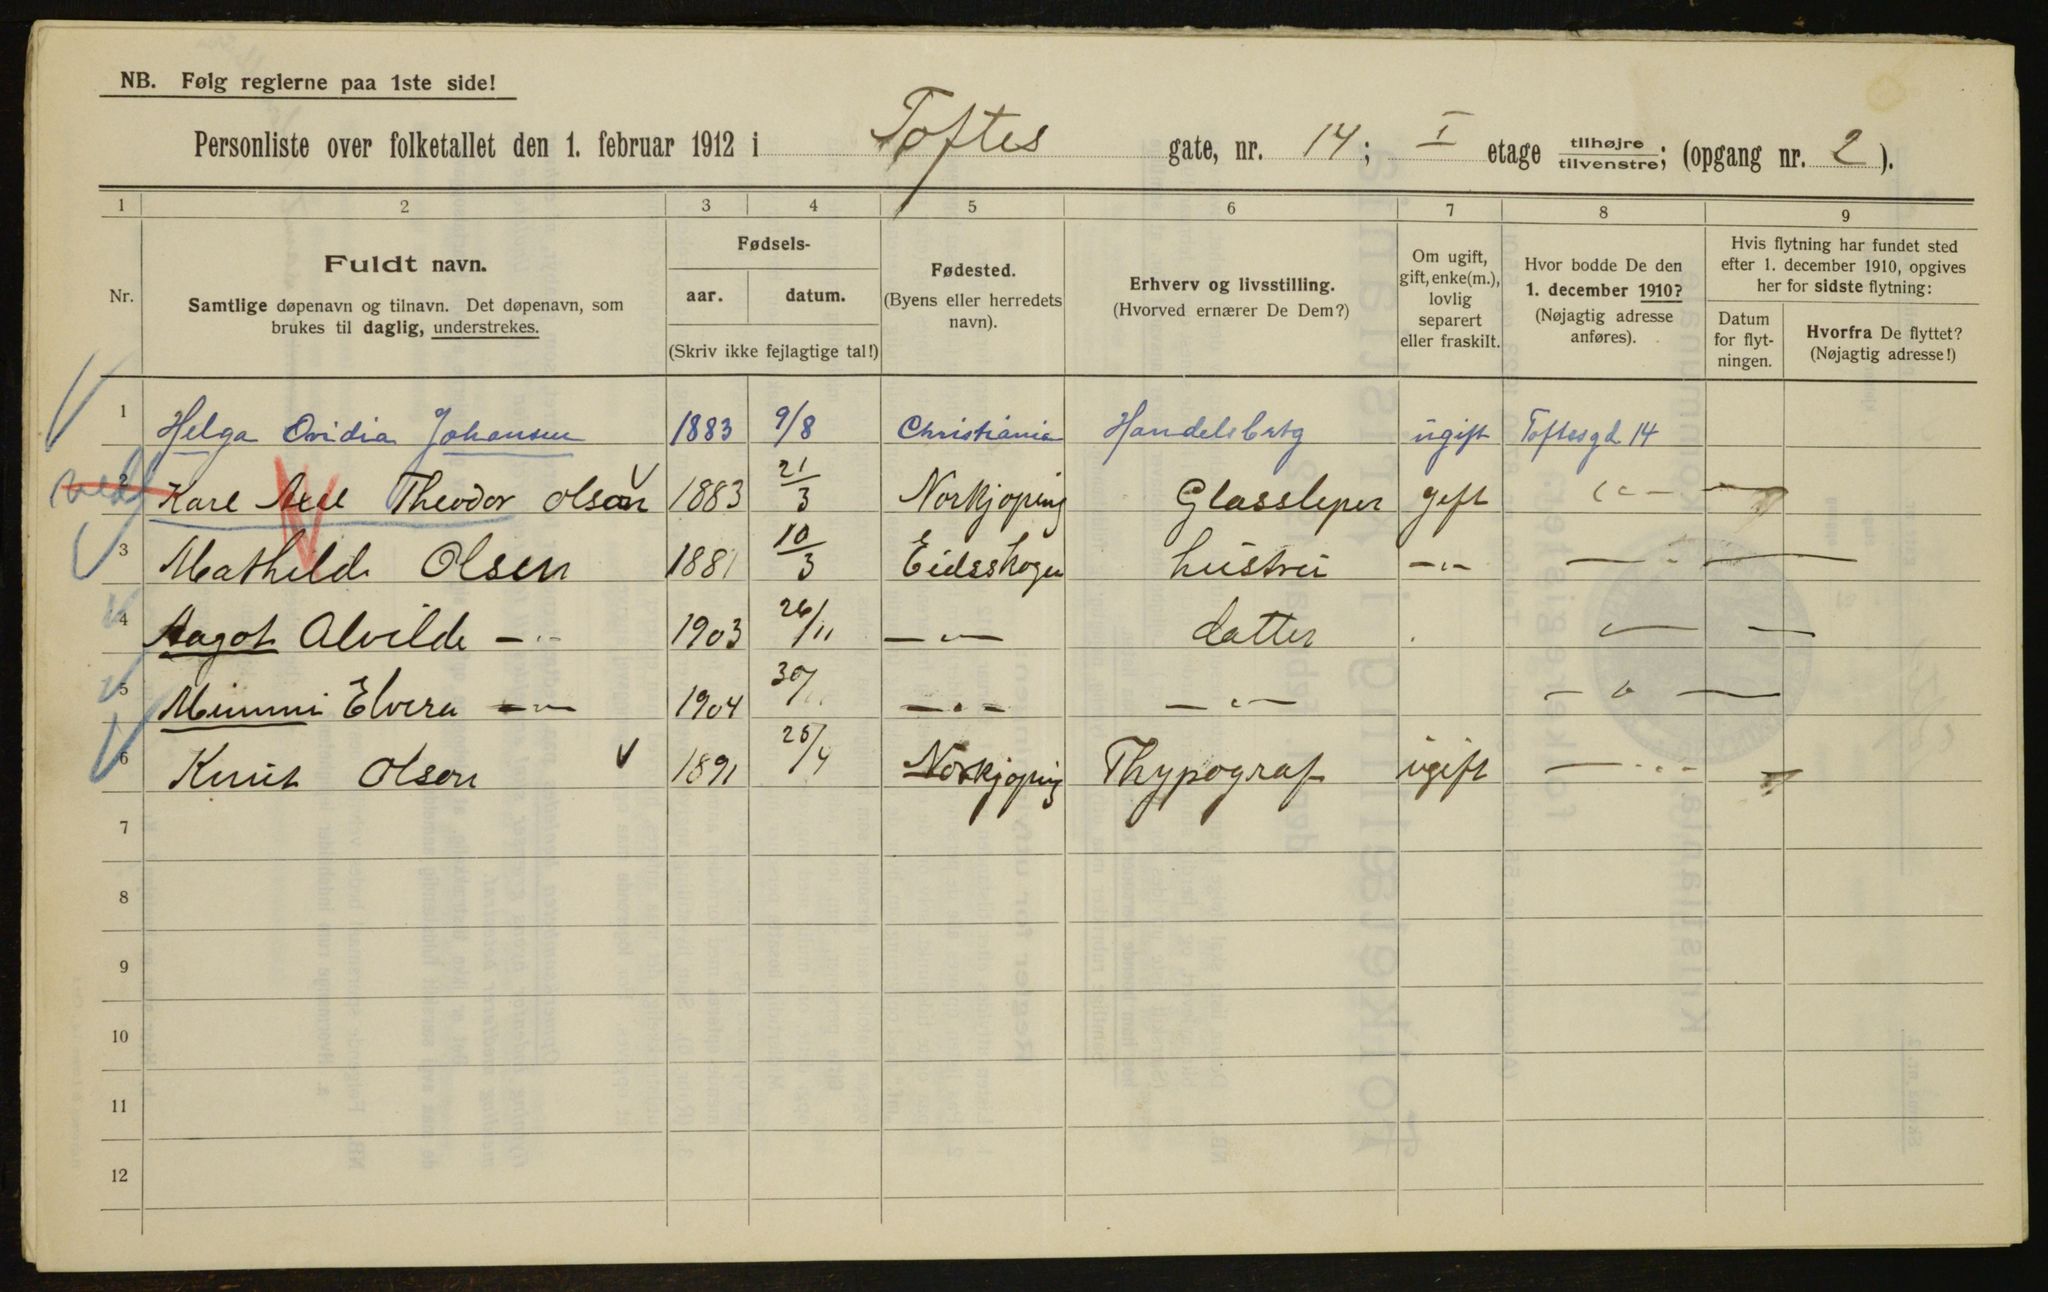 NB. Følg reglerne paa 1ste side!
Personliste over folketallet den 1. februar 1912 i Toftes gate, nr. 14; I etage tilhøjre/tilvenstre; (opgang nr. 2).
1 2 3 4 5 6 7 8 9
Nr.
Fuldt navn.
Samtlige døpenavn og tilnavn. Det døpenavn, som
brukes til daglig, understrekes.
Fødsels-
aar. datum.
(Skriv ikke fejlagtige tal!)
Fødested.
(Byens eller herredets
navn).
Erhverv og livsstilling.
(Hvorved ernærer De Dem?)
Om ugift,
gift, enke(m.),
lovlig
separert
eller fraskilt.
Hvor bodde De den
1. december 1910?
(Nøjagtig adresse
anføres).
Hvis flytning har fundet sted
efter 1. december 1910, opgives
her for sidste flytning:
Datum
for flyt-
ningen.
Hvorfra De flyttet?
(Nøjagtig adresse!)
1 Helga Ovidia Johansen 1883 9/8 Christiania Handelsbetg ugift Toftesgd 14
2 Karl Axel Theodor Olson 1883 21/3 Norkjoping Glassleper gift — " —
3 Mathilde Olsen 1881 10/3 Eidsskogen hustru — " — — " —
4 Aagot Alvilde — " — 1903 26/11 — " — datter — " —
5 Mimmi Elvera — " — 1904 30/11 — " — — " — — " —
6 Knut Olson 1891 25/4 Norkjoping Thypograf ugift — " —
7
8
9
10
11
12